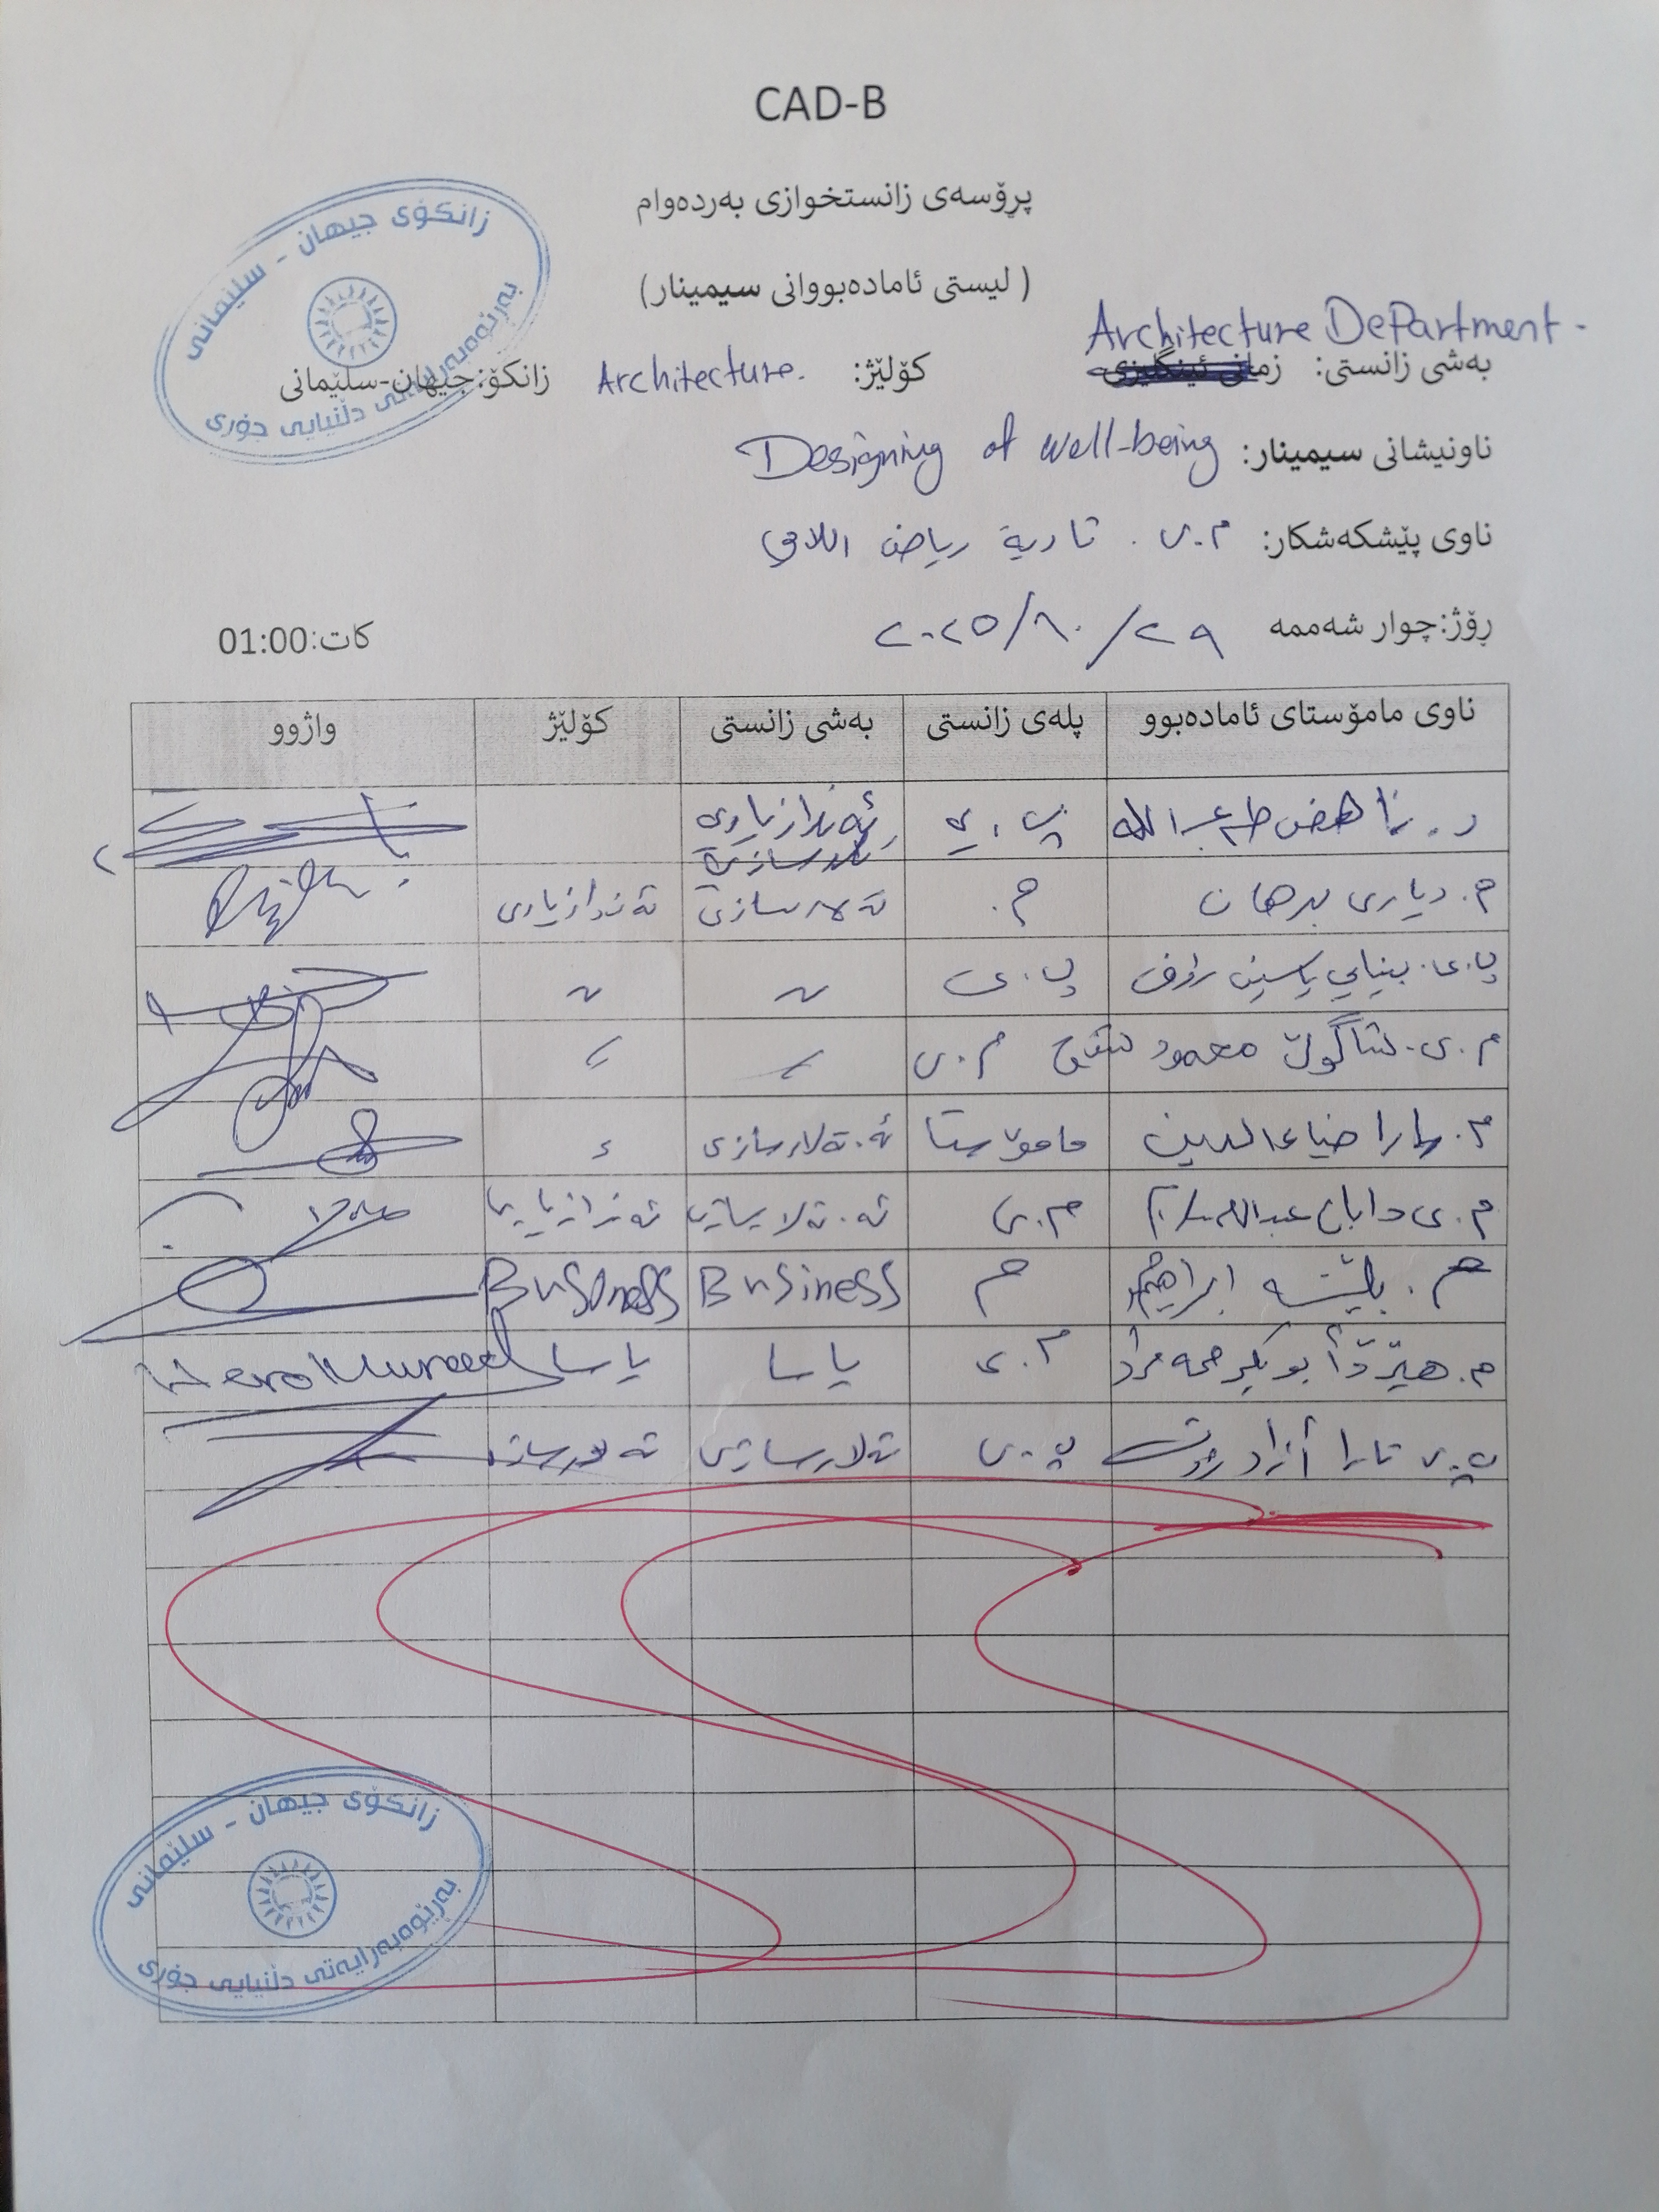 CAD-B
پڕۆسەی زانستخوازی بەردەوام
( لیستی ئامادەبووانی سیمینار)
زانكۆی جیهان - سلێمانی
بەڕێوەبەرایەتی دڵنیایی جۆری
Architecture DePartment -
بەشی زانستی: زمانی ئینگلیزی کۆلێژ: Architecture. زانکۆ:جیهان-سلێمانی
ناونیشانی سیمینار: Designing of well-being
ناوی پێشکەشکار: م.ی. ریاض
ڕۆژ:چوار شەممە ٢٠٢٥/١٠/٢٩ کات:01:00
ناوی مامۆستای ئامادەبوو پلەی زانستی بەشی زانستی کۆلێژ واژوو
د. ناهض طه عبدالله پ.ی ئەندازیاری
م. دیاری برهان م. تەلارسازی ئەندازیاری
پ.ی. بینایی یاسین رؤوف پ.ی 〃 〃
م.ی. شاگوڵ محمود م.ی 〃 〃
م. ضیاءالدین مامۆستا ئە.تەلارسازی
م.ی عبدالله م.ی ئە.تەلارسازی ئەندازیاری
م. ابراهیم م Business Business
م. هێرۆ أبوبکر حمە مراد م.ی یاسا یاسا Hero Muraad
پ.ی تارا آزاد رؤوف پ.ی تەلارسازی تەلارسازی
زانكۆی جیهان - سلێمانی
بەڕێوەبەرایەتی دڵنیایی جۆری